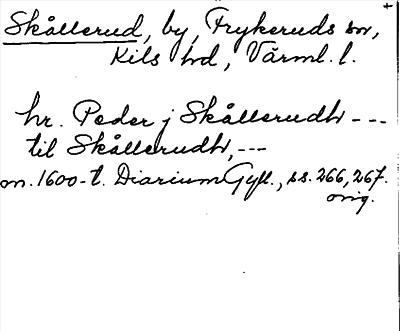 Skållerud, by, Frykeruds sn,
Kils hd, Värml. l.
hr. Peder j Skållerudh ---
til Skållerudh, ---
m. 1600-t. Diarium Gyll., ss. 266, 267.
orig.